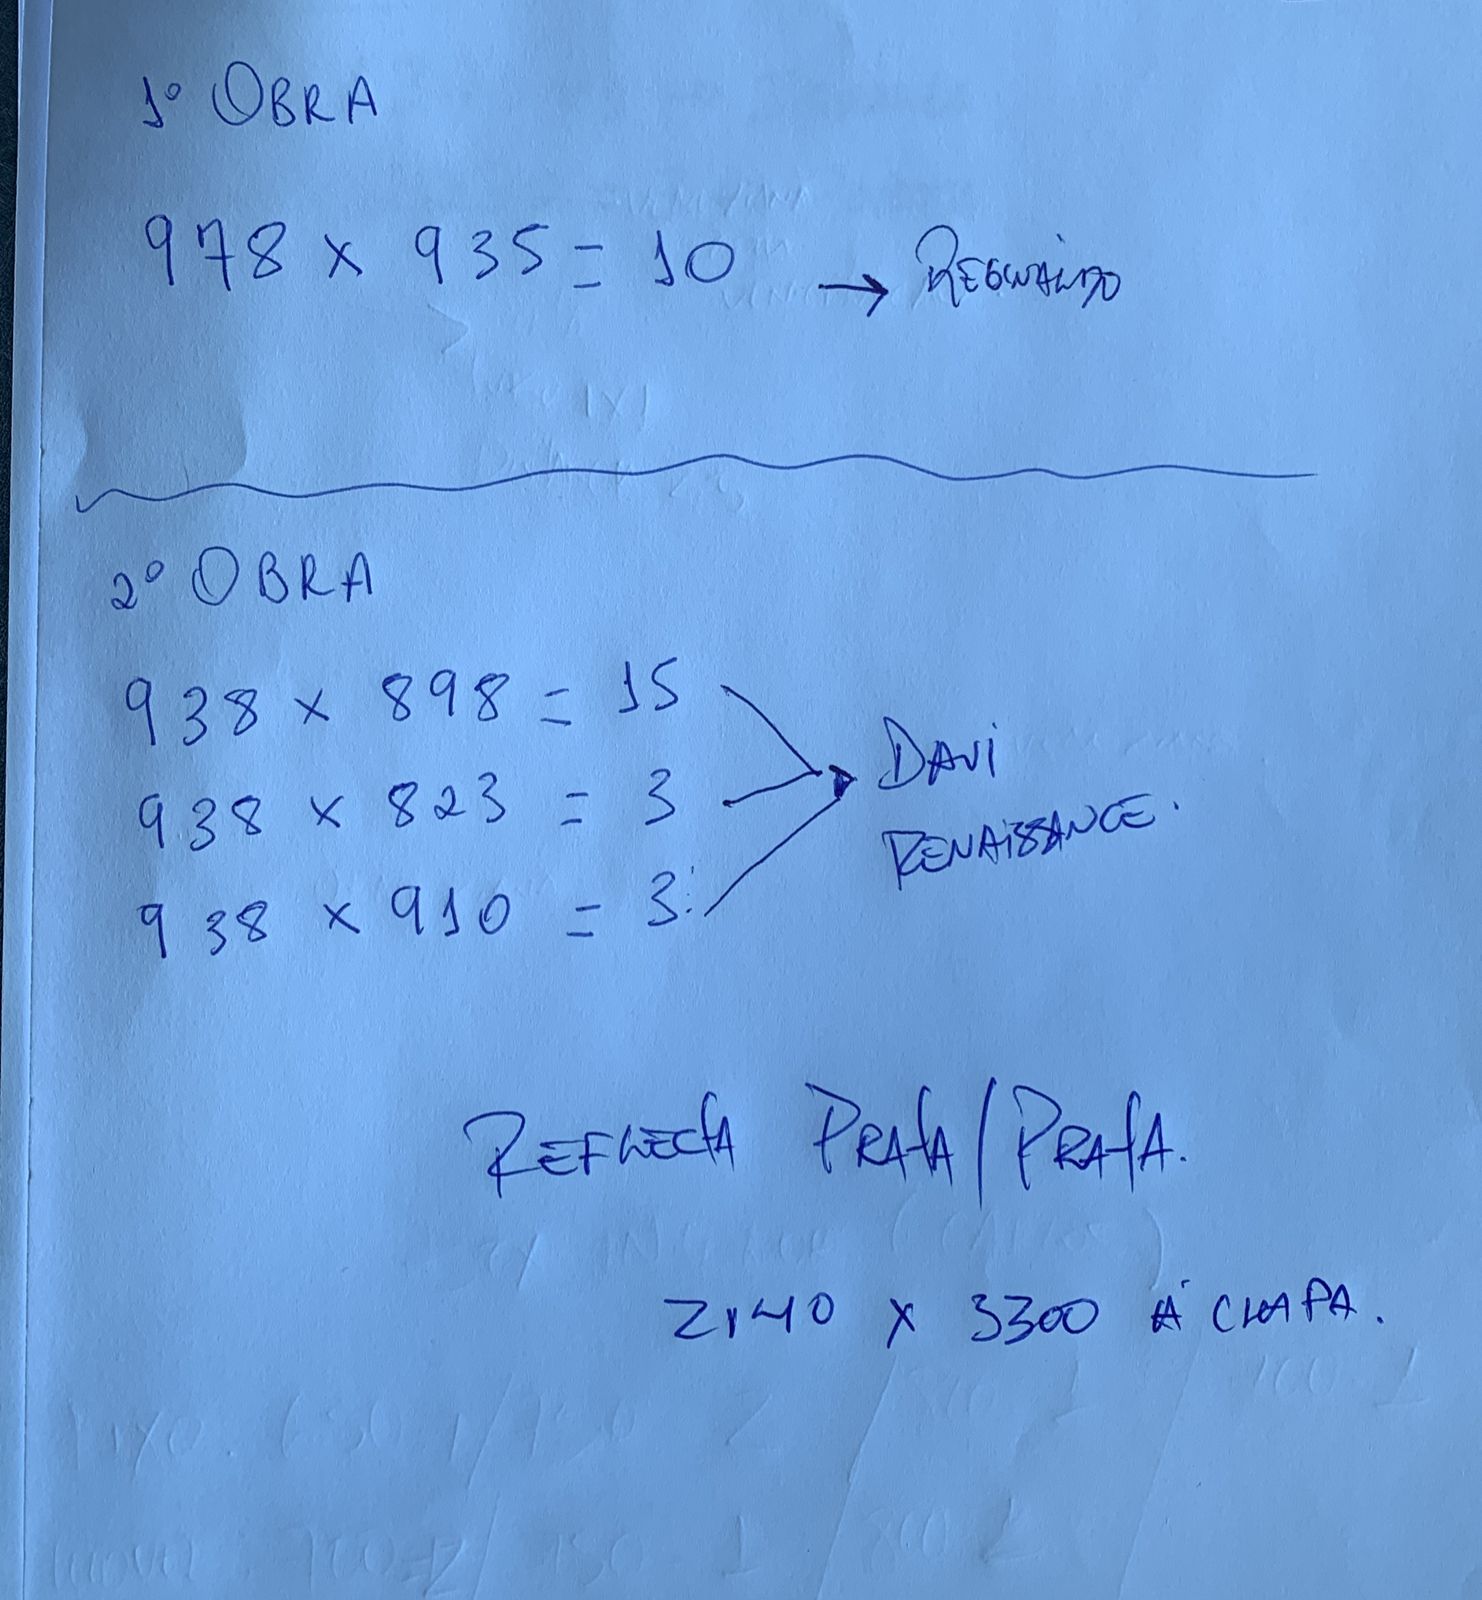 1º OBRA
978 x 935 = 10 → REGINALDO
2º OBRA
938 x 898 = 15
938 x 823 = 3
938 x 910 = 3
DAVI
RENAISSANCE.
REFLECTA PRATA/PRATA.
2140 x 3300 A CHAPA.